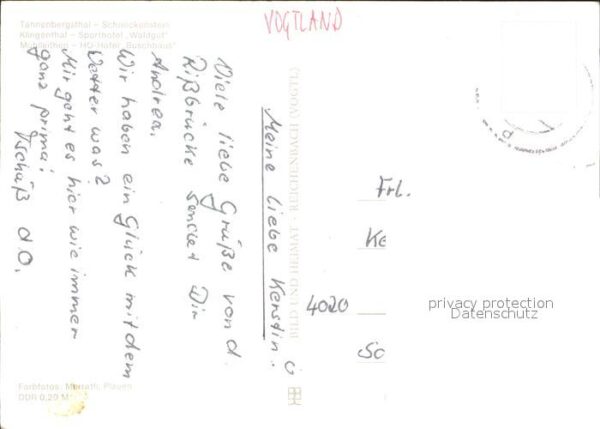 VOGTLAND
Tannenbergsthal – Schneckenstein
Klingenthal – Sporthotel „Waldgut"
Mühlleithen – HO-Hotel „Buschhaus"
Meine liebe Kerstin!
Viele liebe Grüße von d.
Rißbrücke sendet Dir
Andrea.
Wir haben ein Glück mit dem
Wetter was?
Mir geht es hier wie immer
ganz prima!
Tschüß d.O.
BILD UND HEIMAT REICHENBACH (VOGTL)
Frl.
Ke
4020
So
privacy protection
Datenschutz
Farbfotos: Merrath, Plauen
DDR 0,20 M